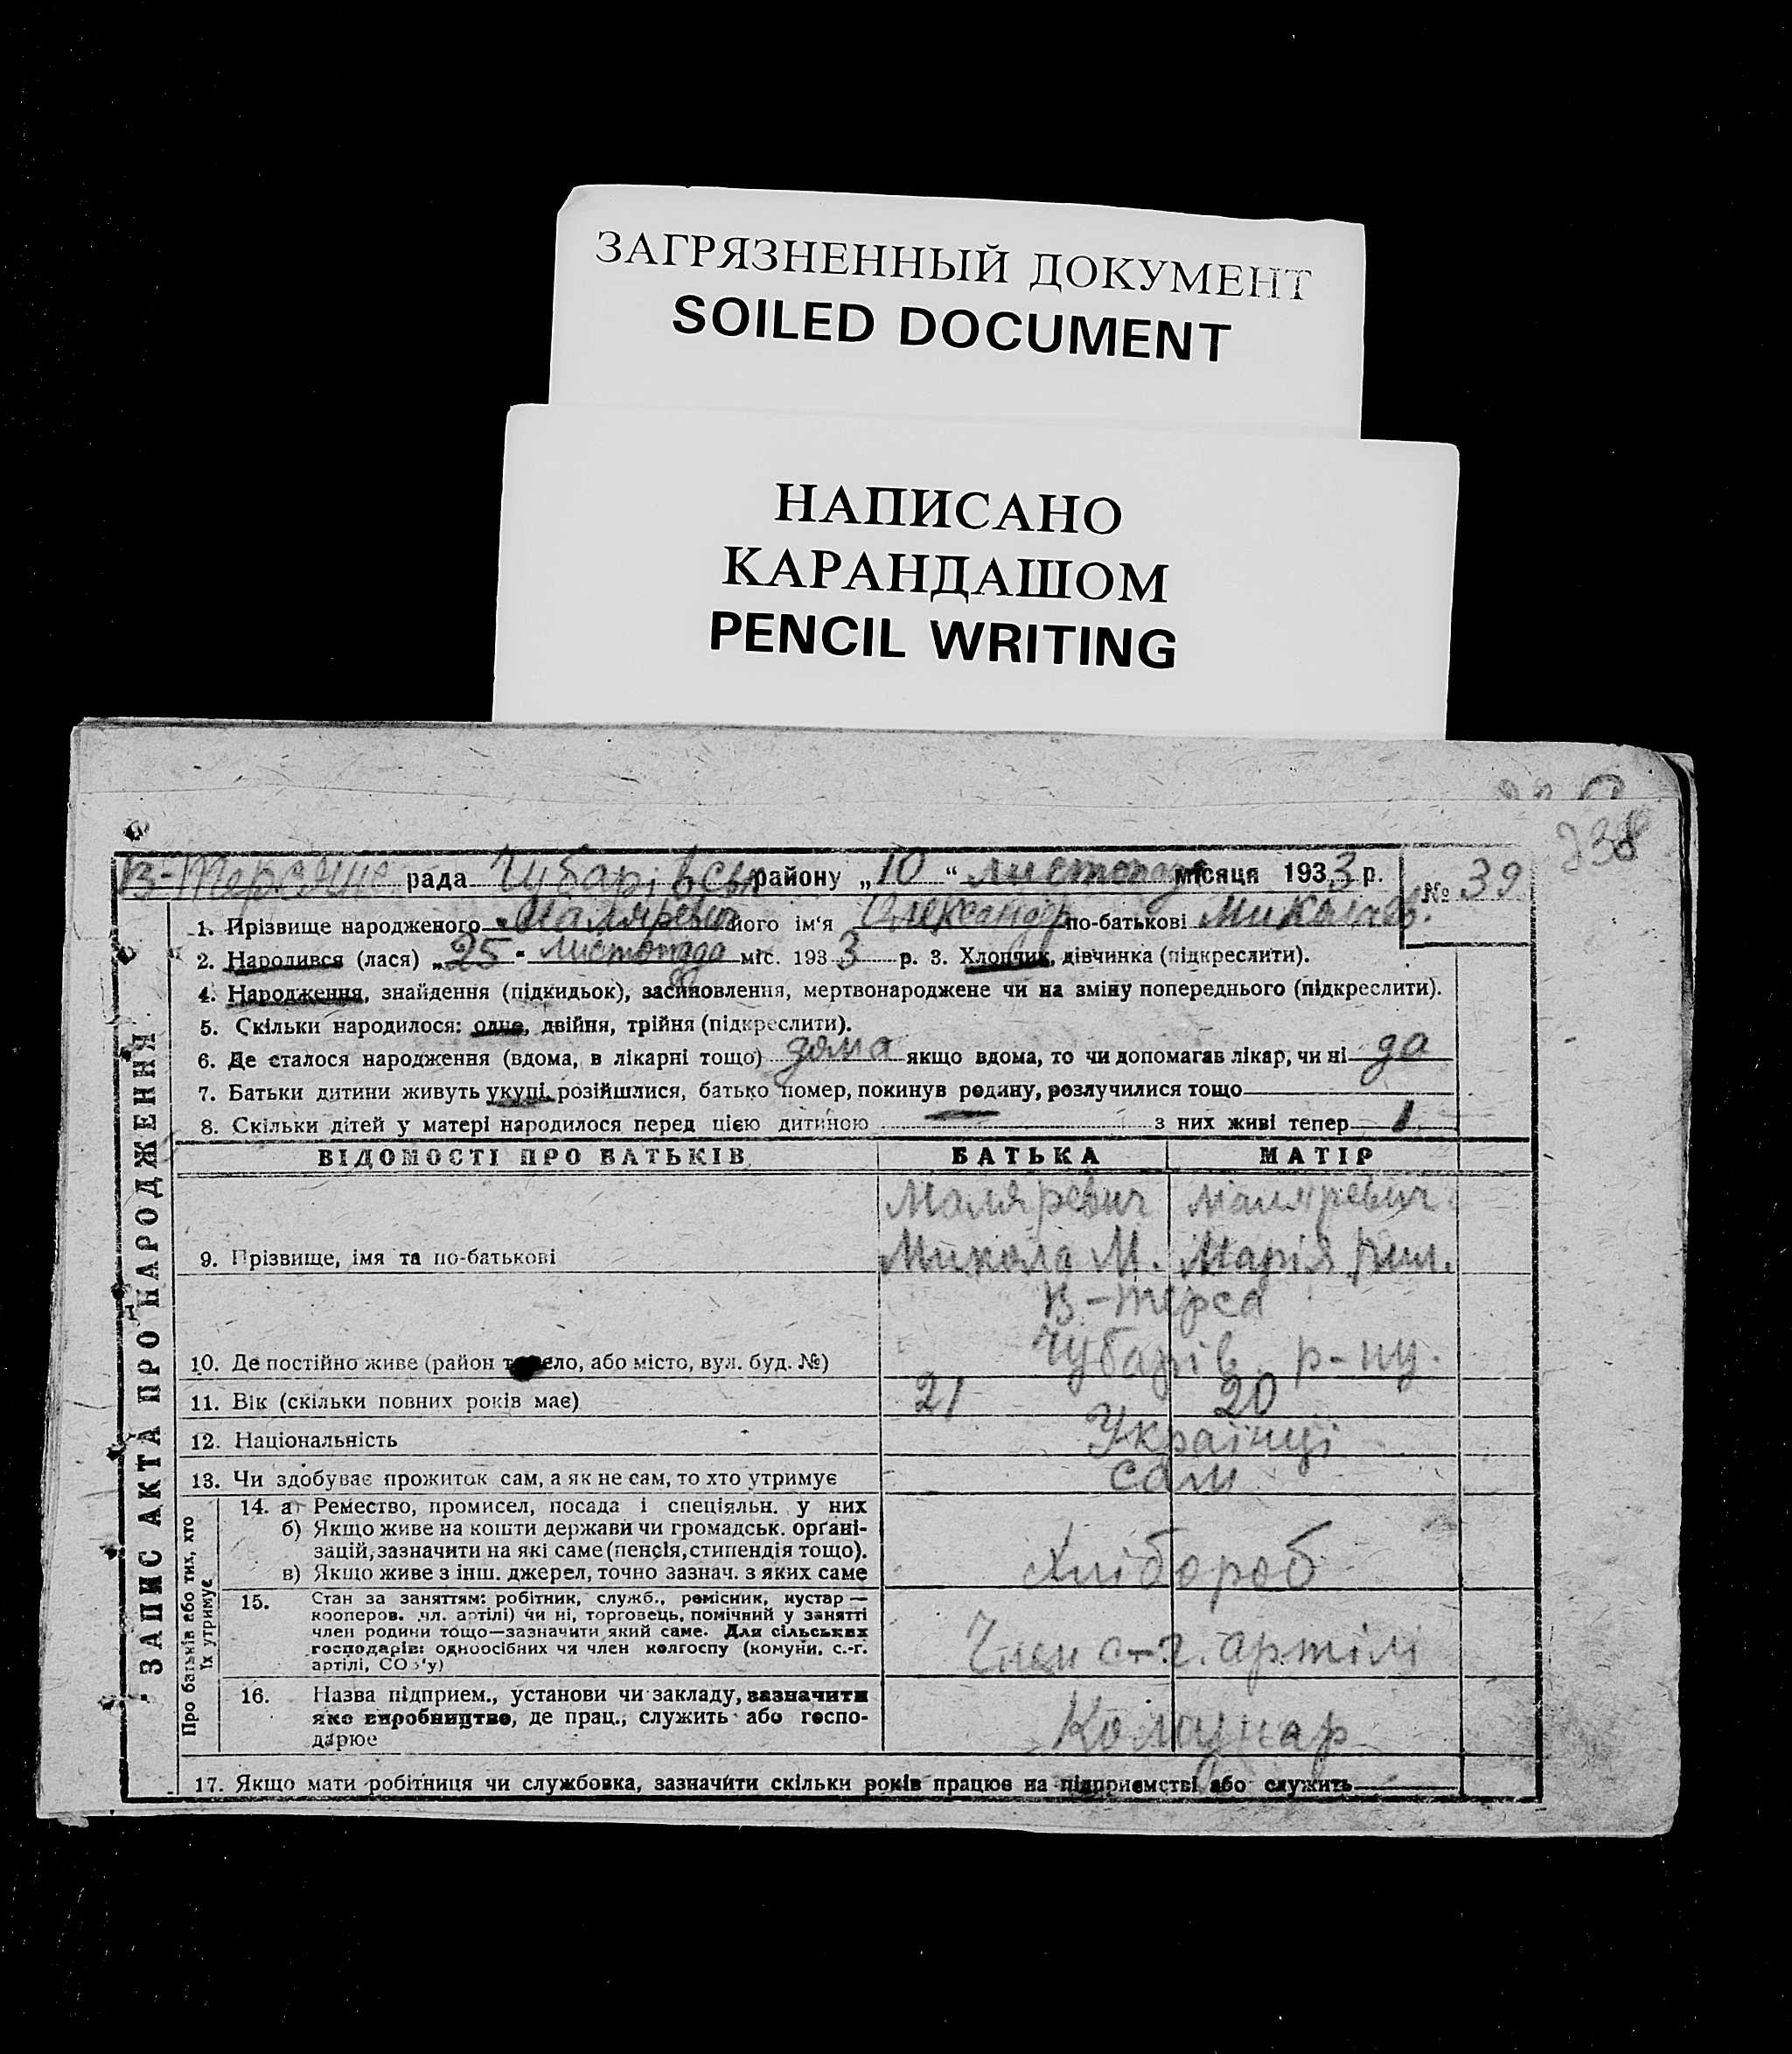 ЗАГРЯЗНЕННЫЙ ДОКУМЕНТ
SOILED DOCUMENT
НАПИСАНО
КАРАНДАШОМ
PENCIL WRITING
238
рада Чубарівськ району „10“ листопада місяця 1933 р. № 39
1. Прізвище народженого Маляревич його ім'я Олександр по-батькові Миколаев.
2. Народився (лася) „25" листопада міс. 1933 р. 3. Хлопчик, дівчинка (підкреслити).
4. Народження, знайдення (підкидьок), засиновлення, мертвонароджене чи на зміну попереднього (підкреслити).
5. Скільки народилося: одне, двійня, трійня (підкреслити).
6. Де сталося народження (вдома, в лікарні тощо) дома якщо вдома, то чи допомагав лікар, чи ні да
7. Батьки дитини живуть укупі, розійшлися, батько помер, покинув родину, розлучилися тощо
8. Скільки дітей у матері народилося перед цією дитиною — з них живі тепер 1
ЗАПИС АКТА ПРО НАРОДЖЕННЯ
ВІДОМОСТІ ПРО БАТЬКІВ БАТЬКА МАТІР
Маляревич Маляревич.
9. Прізвище, імя та по-батькові Микола М. Марія
В-Терса
10. Де постійно живе (район та село, або місто, вул. буд. №) Чубарів. р-ну.
11. Вік (скільки повних років має) 21 20
12. Національність Українці
13. Чи здобуває прожиток сам, а як не сам, то хто утримує сам
Про батьків або тих, хто
їх утримує
14. а) Ремество, промисел, посада і спеціяльн. у них
б) Якщо живе на кошти держави чи громадськ. орґані-
зацій, зазначити на які саме (пенсія, стипендія тощо).
в) Якщо живе з інш. джерел, точно зазнач. з яких саме
Хлібороб
15. Стан за заняттям: робітник, служб., ремісник, кустар —
кооперов. чл. артілі) чи ні, торговець, помічний у занятті
член родини тощо—зазначити який саме. Для сільських
господарів: одноосібних чи член колгоспу (комуни, с.-г.
артілі, СОЗ'у)
Член с-г. артілі
16. Назва підприєм., установи чи закладу, зазначити
яке виробництво, де прац., служить або госпо-
дарює
Комунар
17. Якщо мати робітниця чи службовка, зазначити скільки років працює на підприємстві або служить